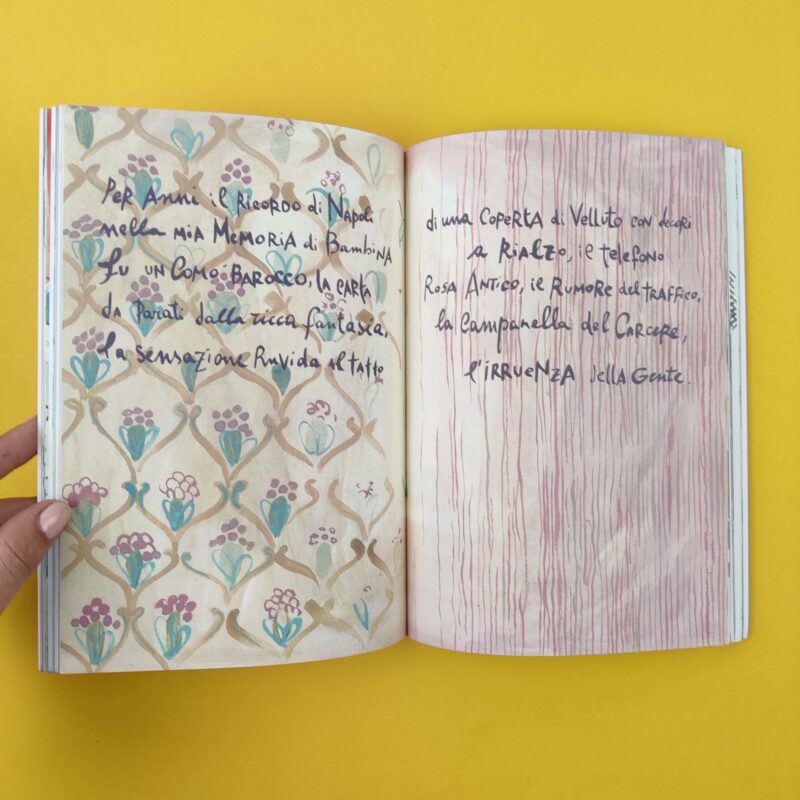 Per Anni il Ricordo di Napoli
nella mia Memoria di Bambina
fu un Comò Barocco, la carta
da Parati dalla ricca fantasia,
la sensazione Ruvida al tatto
di una Coperta di Velluto con decori
a Rialzo, il telefono
Rosa Antico, il Rumore del traffico,
la Campanella del Carcere,
l'irruenza della Gente.